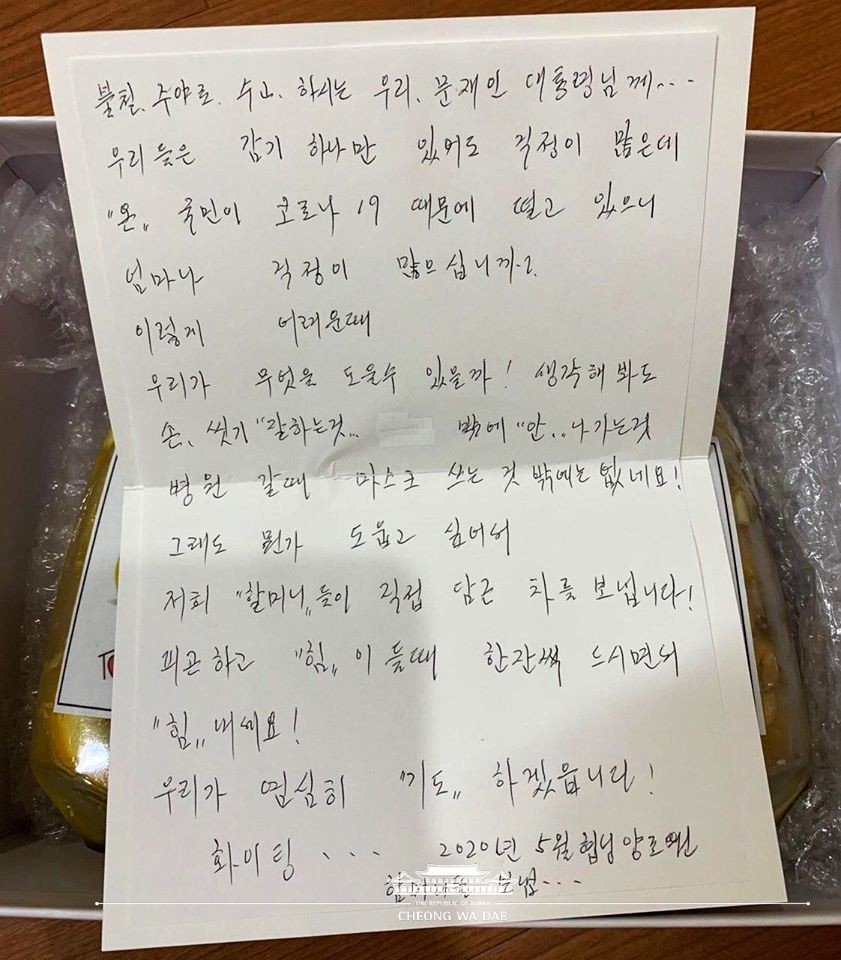 불철, 주야로, 수고, 하시는 우리, 문재인 대통령님께...
우리들은 감기 하나만 있어도 걱정이 많은데
"온" 국민이 코로나 19 때문에 떨고 있으니
얼마나 걱정이 많으십니까?
이렇게 어려운때
우리가 무엇을 도울수 있을까! 생각해 봐도
손, 씻기 "잘하는것... 밖에 "안.. 나가는것
병원 갈때 마스크 쓰는 것 밖에는 없네요!
그래도 뭔가 도웁고 싶어서
저희 "할머니"들이 직접 담근 차를 보냅니다!
피곤하고 "힘" 이 들때 한잔씩 드시면서
"힘" 내세요!
우리가 열심히 "기도" 하겠읍니다!
화이팅 ... 2020년 5월 협성 양로원
할머니들 보냄...
THE REPUBLIC OF KOREA
CHEONG WA DAE